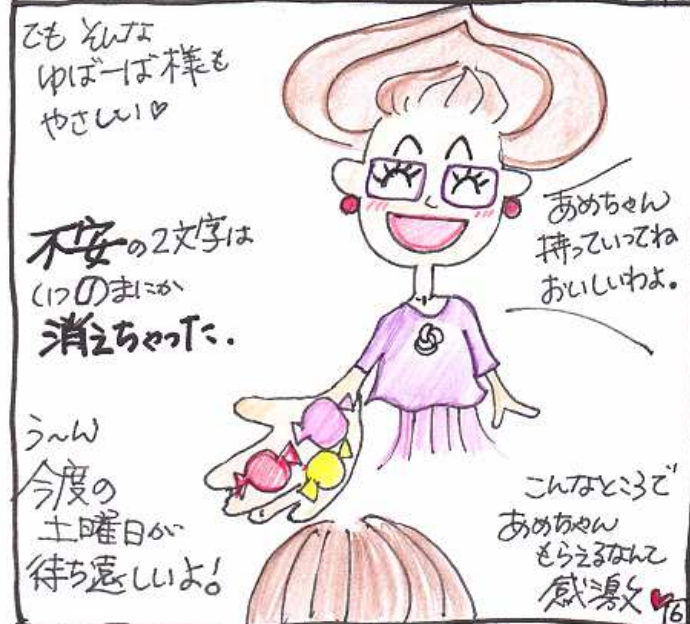 でも そんな
ゆばーば様も
やさしい♡
不安の2文字は
いつのまにか
消えちゃった.
う〜ん
今度の
土曜日が
待ち遠しいよ!
あめちゃん
持っていってね
おいしいわよ。
こんなところで
あめちゃん
もらえるなんて
感激♥
16